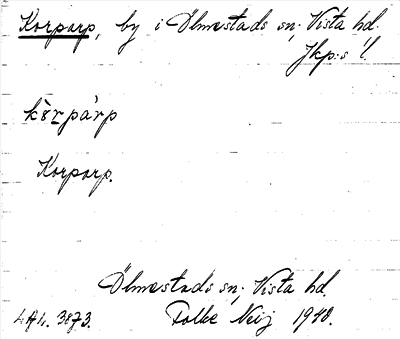 Korparp, by i Ölmestads sn; Vista hd.
Jkp:s l.
kòrpárp
Korparp.
Ölmestads sn; Vista hd.
LAL. 3873. Folke Neij 1948.